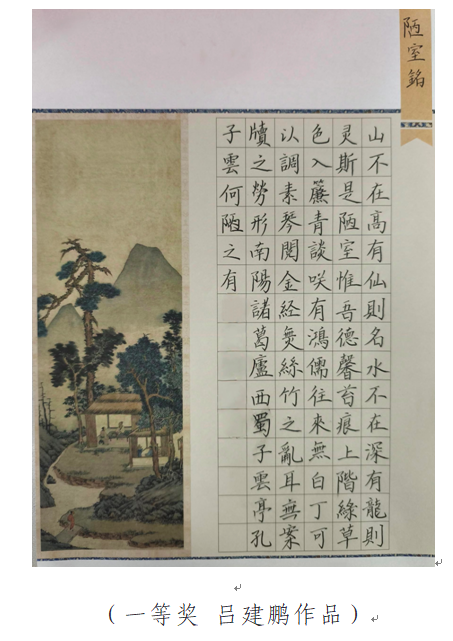 陋室銘
山不在高有仙則名水不在深有龍則
灵斯是陋室惟吾德馨苔痕上階綠草
色入簾青談咲有鴻儒往來無白丁可
以調素琴閱金経無絲竹之亂耳無案
牘之勞形南陽諸葛廬西蜀子雲亭孔
子雲何陋之有
（一等奖 吕建鹏作品）